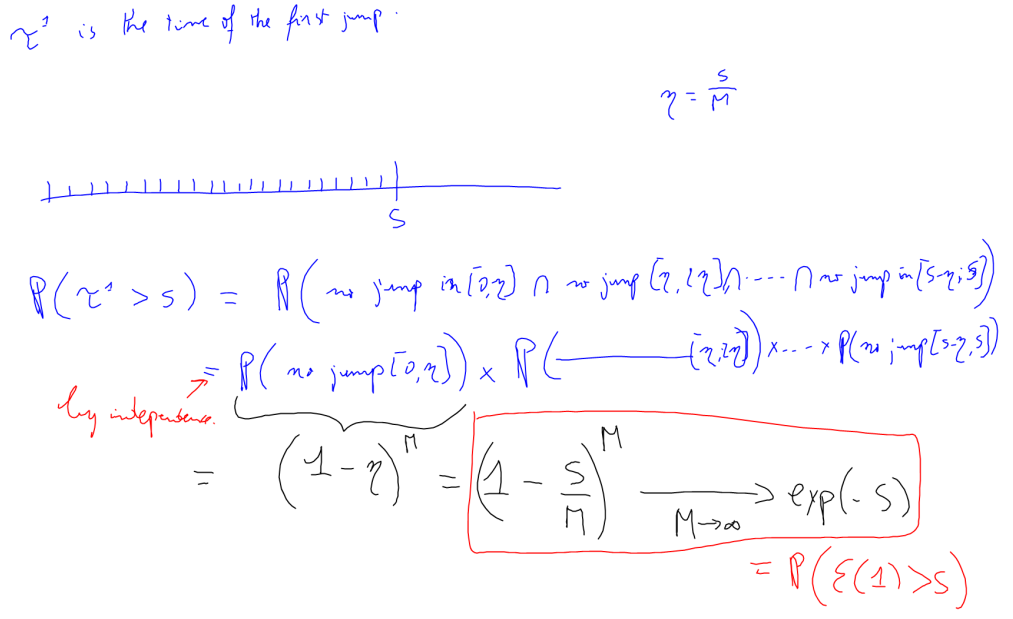 τ¹ is the time of the first jump.
η = s/M
S
ℙ(τ¹ > s) = ℙ( no jump in [0,η] ∩ no jump [η,2η] ∩ ---- ∩ no jump in [s-η; s])
= ℙ( no jump [0,η]) × ℙ( ——— [η,2η]) ×...-× ℙ(no jump [s-η,s])
by independence.
= (1 - η)^M = (1 - s/M)^M ⟶ exp(-s)
M→∞
= ℙ(ℰ(1) > s)